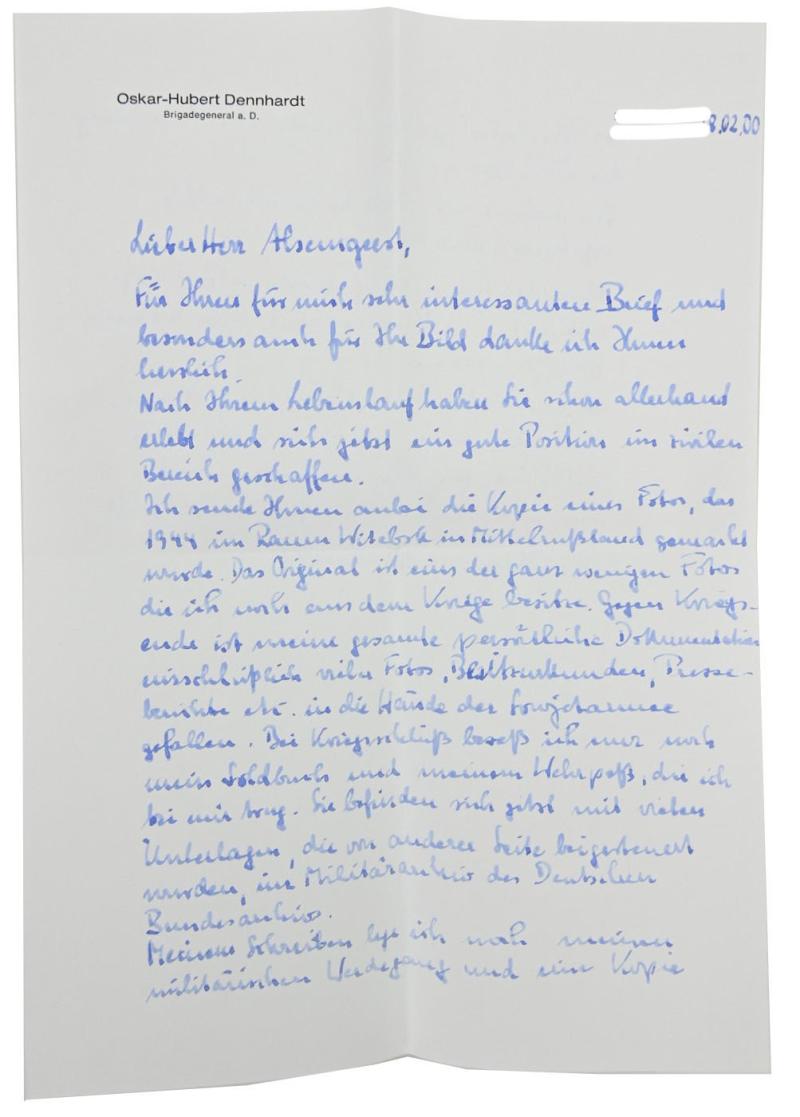 Oskar-Hubert Dennhardt
Brigadegeneral a. D.
8.02.00
Lieber Herr Alsemgeest,
Für Ihren für mich sehr interessanten Brief und
besonders auch für Ihr Bild danke ich Ihnen
herzlich.
Nach Ihrem Lebenslauf haben Sie schon allerhand
erlebt und sich jetzt ein gute Position im zivilen
Bereich geschaffen.
Ich sende Ihnen anbei die Kopie eines Fotos, das
1944 im Raum Witebsk in Mittelrußland gemacht
wurde. Das Original ist eins der ganz wenigen Fotos
die ich noch aus dem Kriege besitze. Gegen Kriegs-
ende ist meine gesamte persönliche Dokumentation
einschließlich vieler Fotos, Besitzurkunden, Presse-
berichte etc. in die Hände der Sowjetarmee
gefallen. Bei Kriegsschluß besaß ich nur noch
mein Soldbuch und meinem Wehrpaß, die ich
bei mir trug. Sie befinden sich jetzt mit vielen
Unterlagen, die von anderer Seite beigesteuert
wurden, im Militärarchiv des Deutschen
Bundesarchivs.
Meinem Schreiben lege ich noch meinen
militärischen Werdegang und eine Kopie